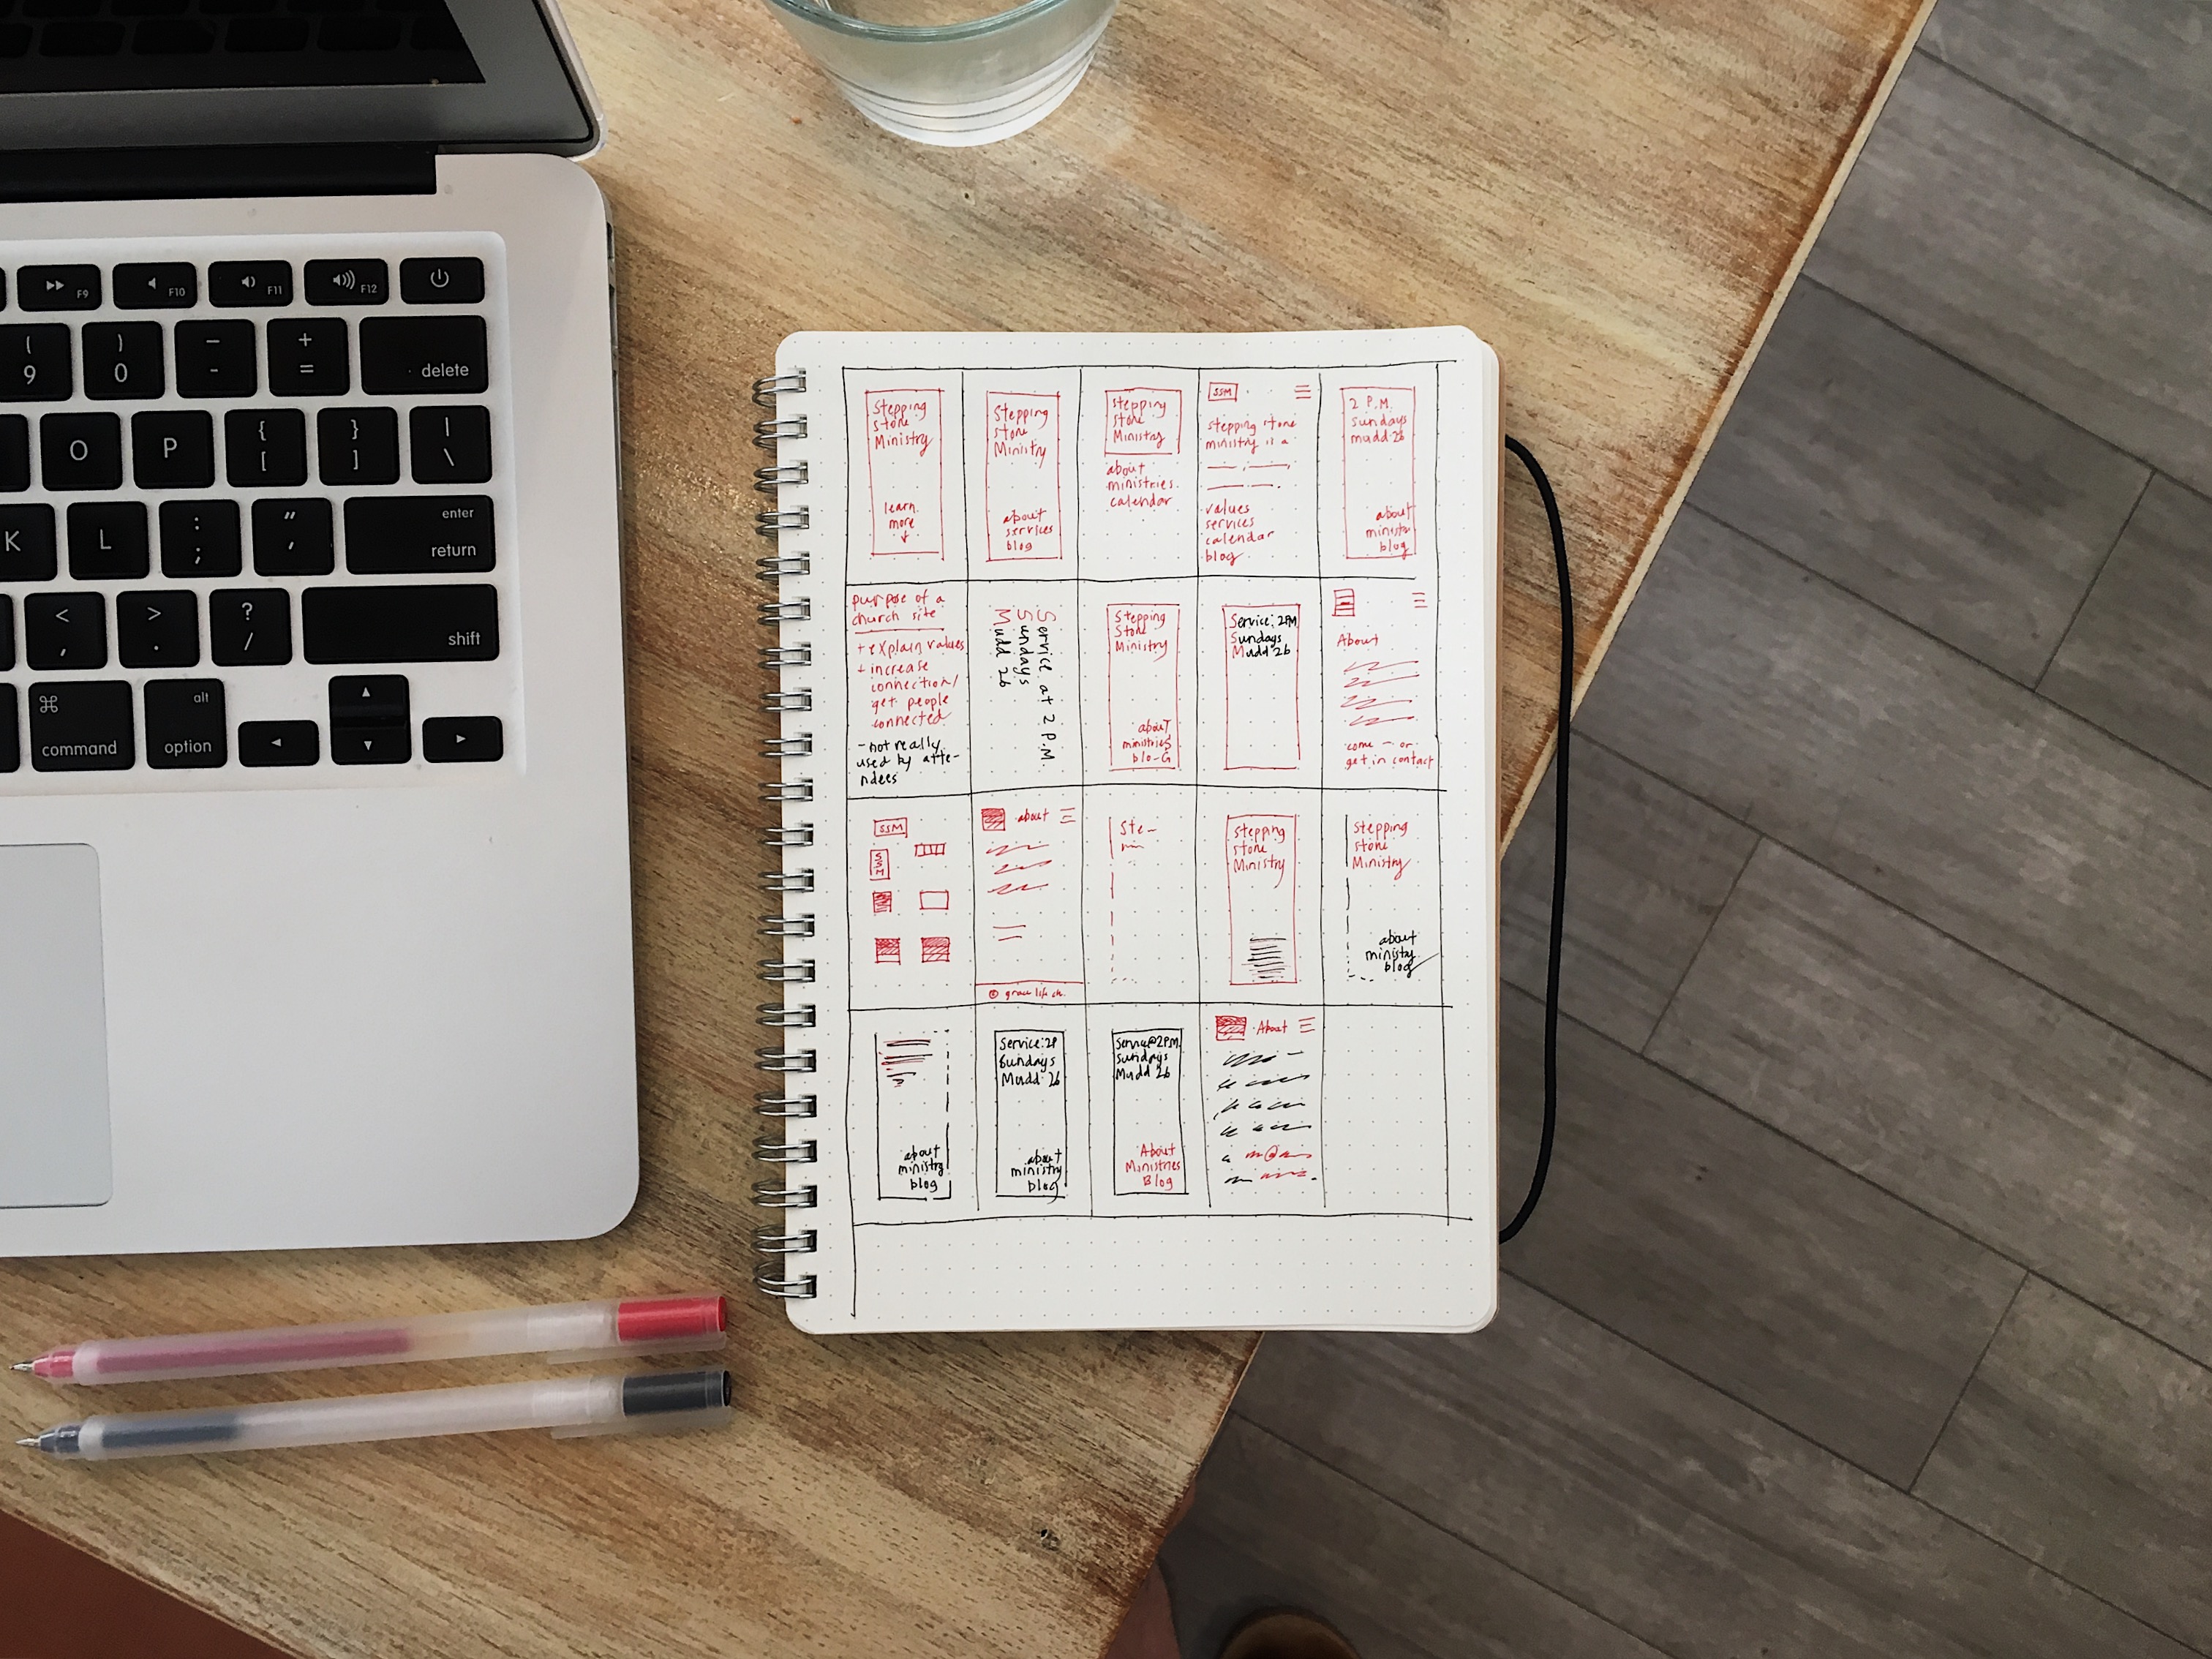 F9
F10
F11
F12
(
9
)
0
–
-
+
=
delete
O
P
{
[
}
]
|
\
K
L
:
;
"
'
enter
return
<
,
>
.
?
/
shift
⌘
command
alt
option
Stepping
stone
Ministry
learn
more
Stepping
stone
Ministry
about
services
blog
stepping
stone
Ministry
about
ministries
calendar
SSM
stepping stone
ministry is a
values
services
calendar
blog
2 P.M.
sundays
mudd 26
about
ministry
blog
purpose of a
church site
+ explain values
+ increase
connection/
get people
connected
- not really
used by atte-
ndees
Service at 2 P.M.
Sundays
Mudd 26
Stepping
Stone
Ministry
about
ministries
blo-G
Service: 2PM
Sundays
Mudd 26
About
come - or
get in contact
SSM
SSM
about
© grace life ch.
Ste-
stepping
stone
Ministry
stepping
stone
Ministry
about
ministry
blog
about
ministry
blog
Service: 2P
Sundays
Mudd 26
about
ministry
blog
Service@2PM
Sundays
Mudd 26
About
Ministries
Blog
About